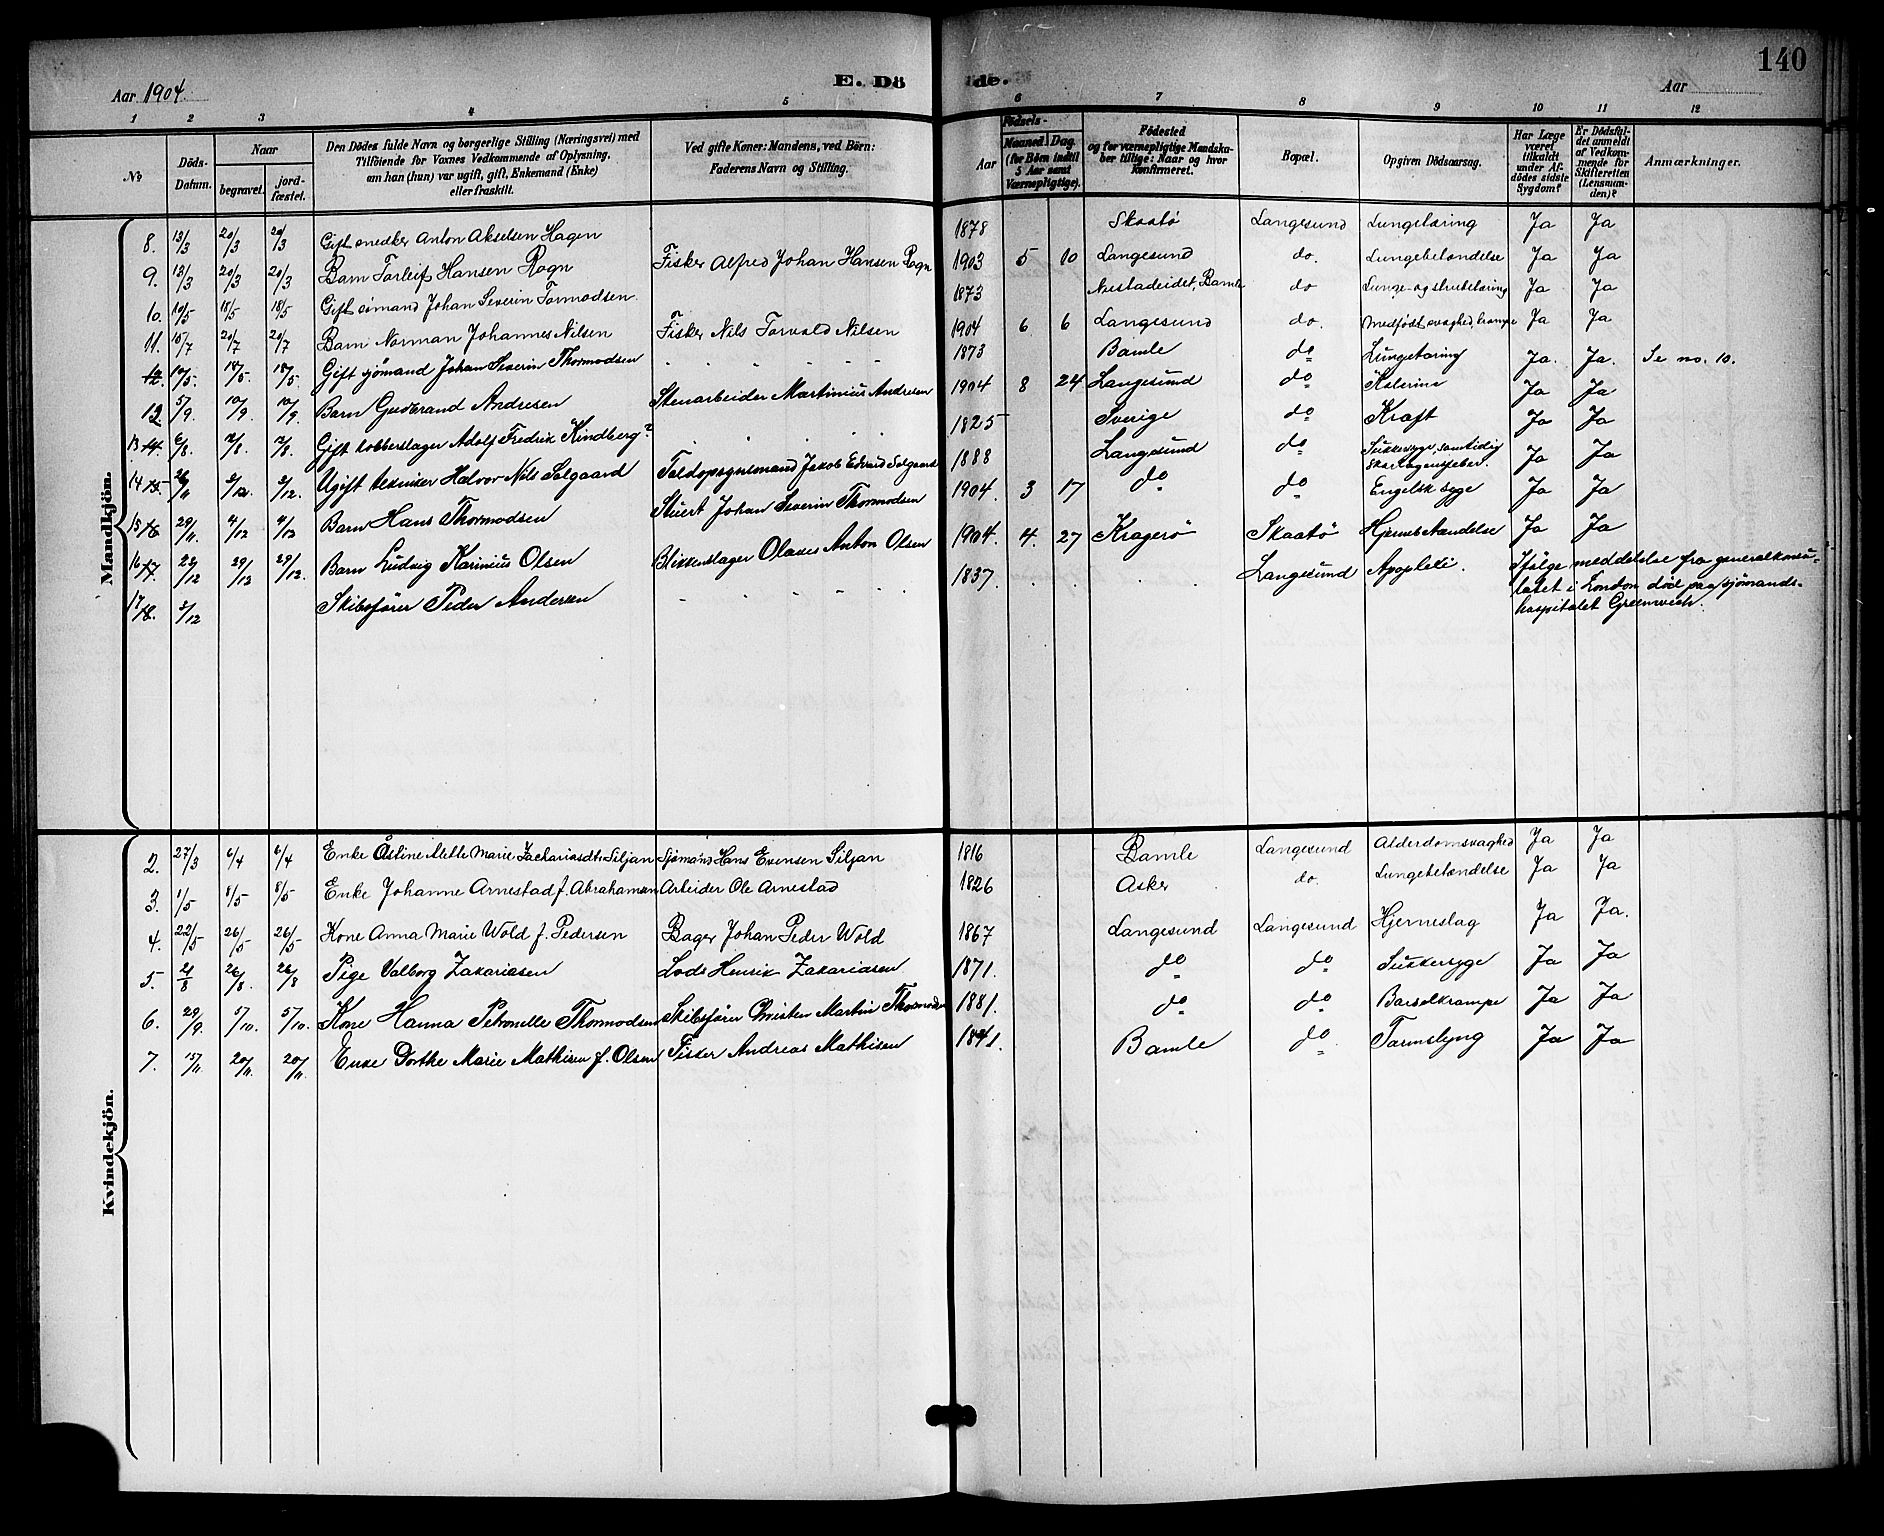 140
Aar 1904. E. Dö de. Aar
1 2 3 4 5 6 7 8 9 10 11 12
No
Döds-Datum.
Naar begravet. jordfæstet.
Den Dödes fulde Navn og borgerlige Stilling (Næringsvei) med Tilföiende for Voxnes Vedkommende af Oplysning, om han (hun) var ugift, gift, Enkemand (Enke) eller fraskilt.
Ved gifte Koner: Mandens, ved Börn: Faderens Navn og Stilling.
Födsels-
Aar Maaned Dag (for Börn indtil 5 Aar samt Værnepligtige).
Födested og for værnepligtige Mandskaber tillige: Naar og hvor konfirmeret.
Bopæl.
Opgiven Dödsaarsag.
Har Læge været tilkaldt under Afdödes sidste Sygdom?
Er Dödsfaldet anmeldt af Vedkommende for Skifteretten (Lensmanden)?
Anmærkninger.
Mandkjön.
8. 13/3 20/3 20/3 Gift snedker Anton Akselsen Hagen 1878 Skaatö Langesund Lungetæring Ja Ja
9. 13/3 20/3 20/3 Barn Torleif Hansen Rogn Fisker Alfred Johan Hansen Rogn 1903 5 10 Langesund do. Lungebetændelse Ja Ja
10. 10/5 18/5 18/5 Gift sömand Johan Severin Tormodsen 1873 Nustadeidet, Bamle do Lunge- og strubetæring Ja Ja
11. 15/7 20/7 20/7 Barn Norman Johannes Nilsen Fisker Nils Torvald Nilsen 1904 6 6 Langesund do. Medfødt svaghed, krampe Ja Ja
12. 10/5. 18/5. 18/5. Gift sjömand Johan Severin Thormodsen 1873 Bamle do Lungetæring Ja. Ja. Se no. 10.
12. 5/9. 10/9. 10/9. Barn Gudbrand Andresen Stenarbeider Martinius Andresen 1904 8 24 Langesund do Kolerine Ja Ja
13 14. 6/8. Gift kobberslager Adolf Fredrik Kindberg? 1825 Sverige do Kræft Ja Ja
14 15. 26/11 2/12. 2/12. Ugift tekniker Halvor Nils Solgaard Toldopsynsmand Jakob Edvard Solgaard 1888 Langesund do Sukkersyge, samtidig skarlagensfeber. Ja Ja
15 16 29/11. 4/12 4/12 Barn Hans Thormodsen Stuert Johan Severin Thormodsen 1904. 3 17 do do Engelsk syge Ja Ja
16 17. 22/12 29/12 29/12. Barn Ludvig Karinius Olsen Blikkenslager Olaves Anton Olsen 1904. 4. 27 Kragerö Skaatö Hjernebetændelse Ja Ja
17 18. 2/12 Skibsfører Peder Andersen 1837. Langesund Apopleksi. Ifölge meddelelse fra generalkonsulatet i London död paa sjömandshospitalet Greenwich.
Kvindekjön.
2. 27/3 6/4 6/4 Enke Åsline Mette Marie Zachariasdt. Siljan Sjömand Hans Evensen Siljan 1816 Bamle Langesund Alderdomsvaghed Ja Ja
3. 1/5 8/5 8/5 Enke Johanne Arnestad f. Abrahamsen Arbeider Ole Arnestad 1826 Asker do. Lungebetændelse Ja Ja
4. 22/5 26/5 26/5 Kone Anna Marie Wold f. Pedersen Bager Johan Peder Wold 1867 Langesund Langesund Hjerneslag Ja Ja.
5. 21/8 26/8. 26/8 Pige Valborg Zakariasen Lods Henrik Zakariasen 1871. do do Sukkersyge Ja Ja
6. 29/9. 5/10. 5/10. Kone Hanna Petronelle Thormodsen Skibsfører Christen Martin Thormodsen 1881. do do Barselkrampe Ja Ja
7. 15/11 20/11. 20/11. Enke Dorthe Marie Mathisen f. Olsen Fisker Andreas Mathisen 1841. Bamle do. Tarmslyng Ja Ja